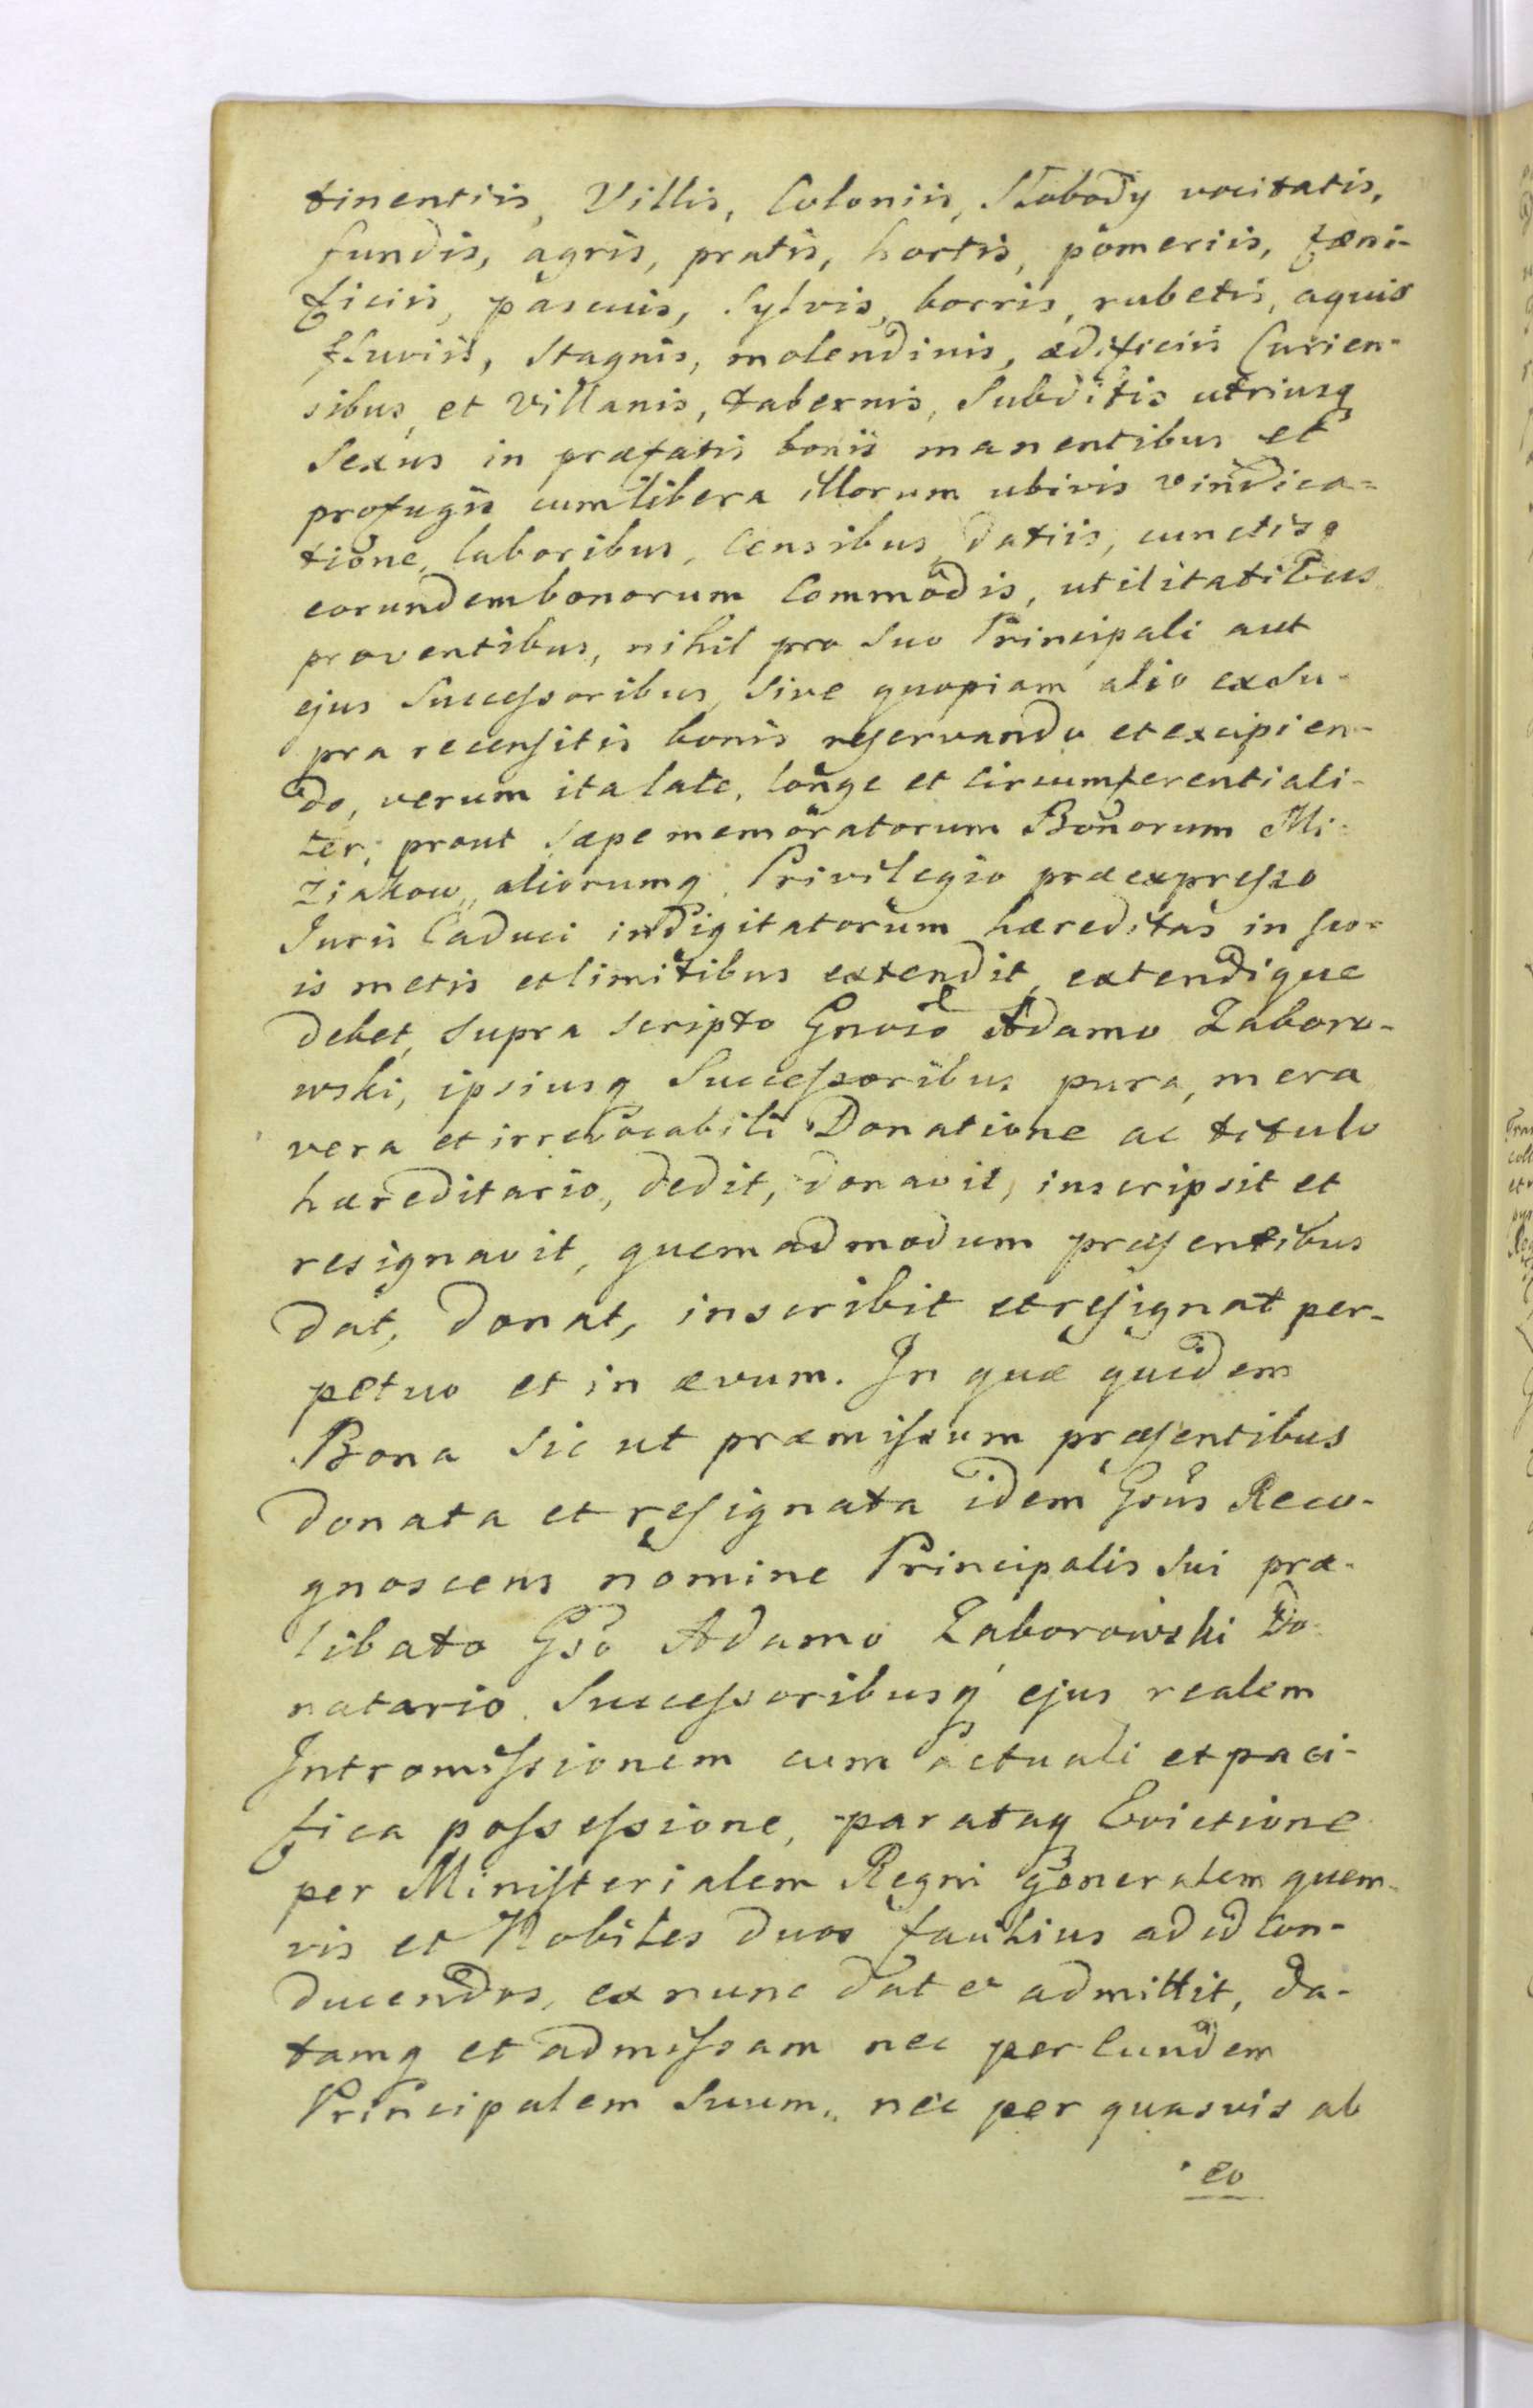 tinentiis, Villis, Coloniis, Słobody vocitatis,
fundis, agris, pratis, hortis, pomeriis, fæni-
ficiis, pascuis, Sylvis, borris, rubetis, aquis
fluviis, Stagnis, molendinis, ædificiis Curien-
sibus et Villanis, tabernis, Subditis utriusq
Sexus in præfatis bonis manentibus et
profugis cum libera illorum ubivis vindica=
tione, laboribus, Censibus, datiis, cunctisq
eorundem bonorum Commodis, utilitatibus
proventibus, nihil pro Suo Principali aut
ejus Successoribus, Sive quopiam alio ex Su-
pra recensitis bonis reservando et excipien-
do, verum ita late, longe et Circumferentiali-
ter, prout Sæpe memoratorum Bonorum Mi-
ziakow, aliorumq Privilegio præexpresso
Juris Caduci indigitatorum hæreditas in suo-
is metis et limitibus extendit, extendique
debet, Supra Scripto Gnoso Adamo Zaboro-
wski, ipsiusq Successoribus pura, mera
vera et irrevocabili Donatione ac titulo
hæreditario, dedit, donavit, inscripsit et
resignavit, quemadmodum præsentibus
dat, donat, inscribit et resignat per-
petuo et in ævum. In quæ quidem
Bona Sic ut præmissum præsentibus
donata et resignata idem Gsus Reco-
gnoscens nomine Principalis Sui præ-
libato Gso Adamo Zaborowski Do-
natario Successoribusq ejus realem
Intromissionem cum actuali et paci-
fica possessione, parataq Evictione
per Ministerialem Regni Generalem quem-
vis et Nobiles duos fautius ad id Con-
ducendos, ex nunc dat et admittit, da-
tamq et admissam nec per Eundem
Principalem Suum, nec per quasvis ab
eo